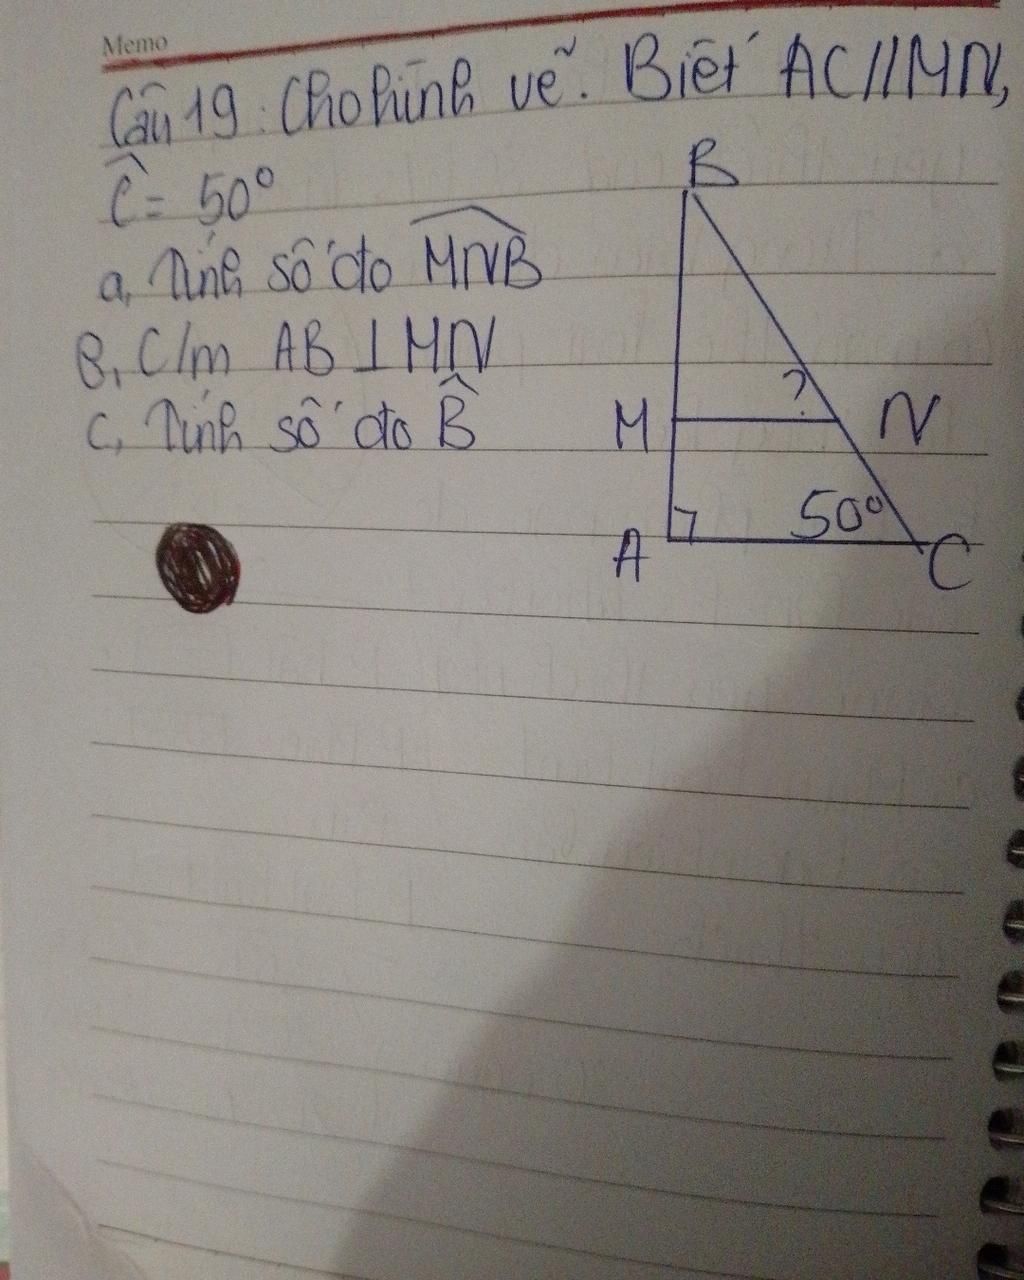 Memo
Câu 19: Cho hình vẽ. Biết AC//MN,
Ĉ = 50°
a, Tính số đo MNB̂
b, C/m AB ⊥ MN
c, Tính số đo B̂
B
?
M N
50°
A C